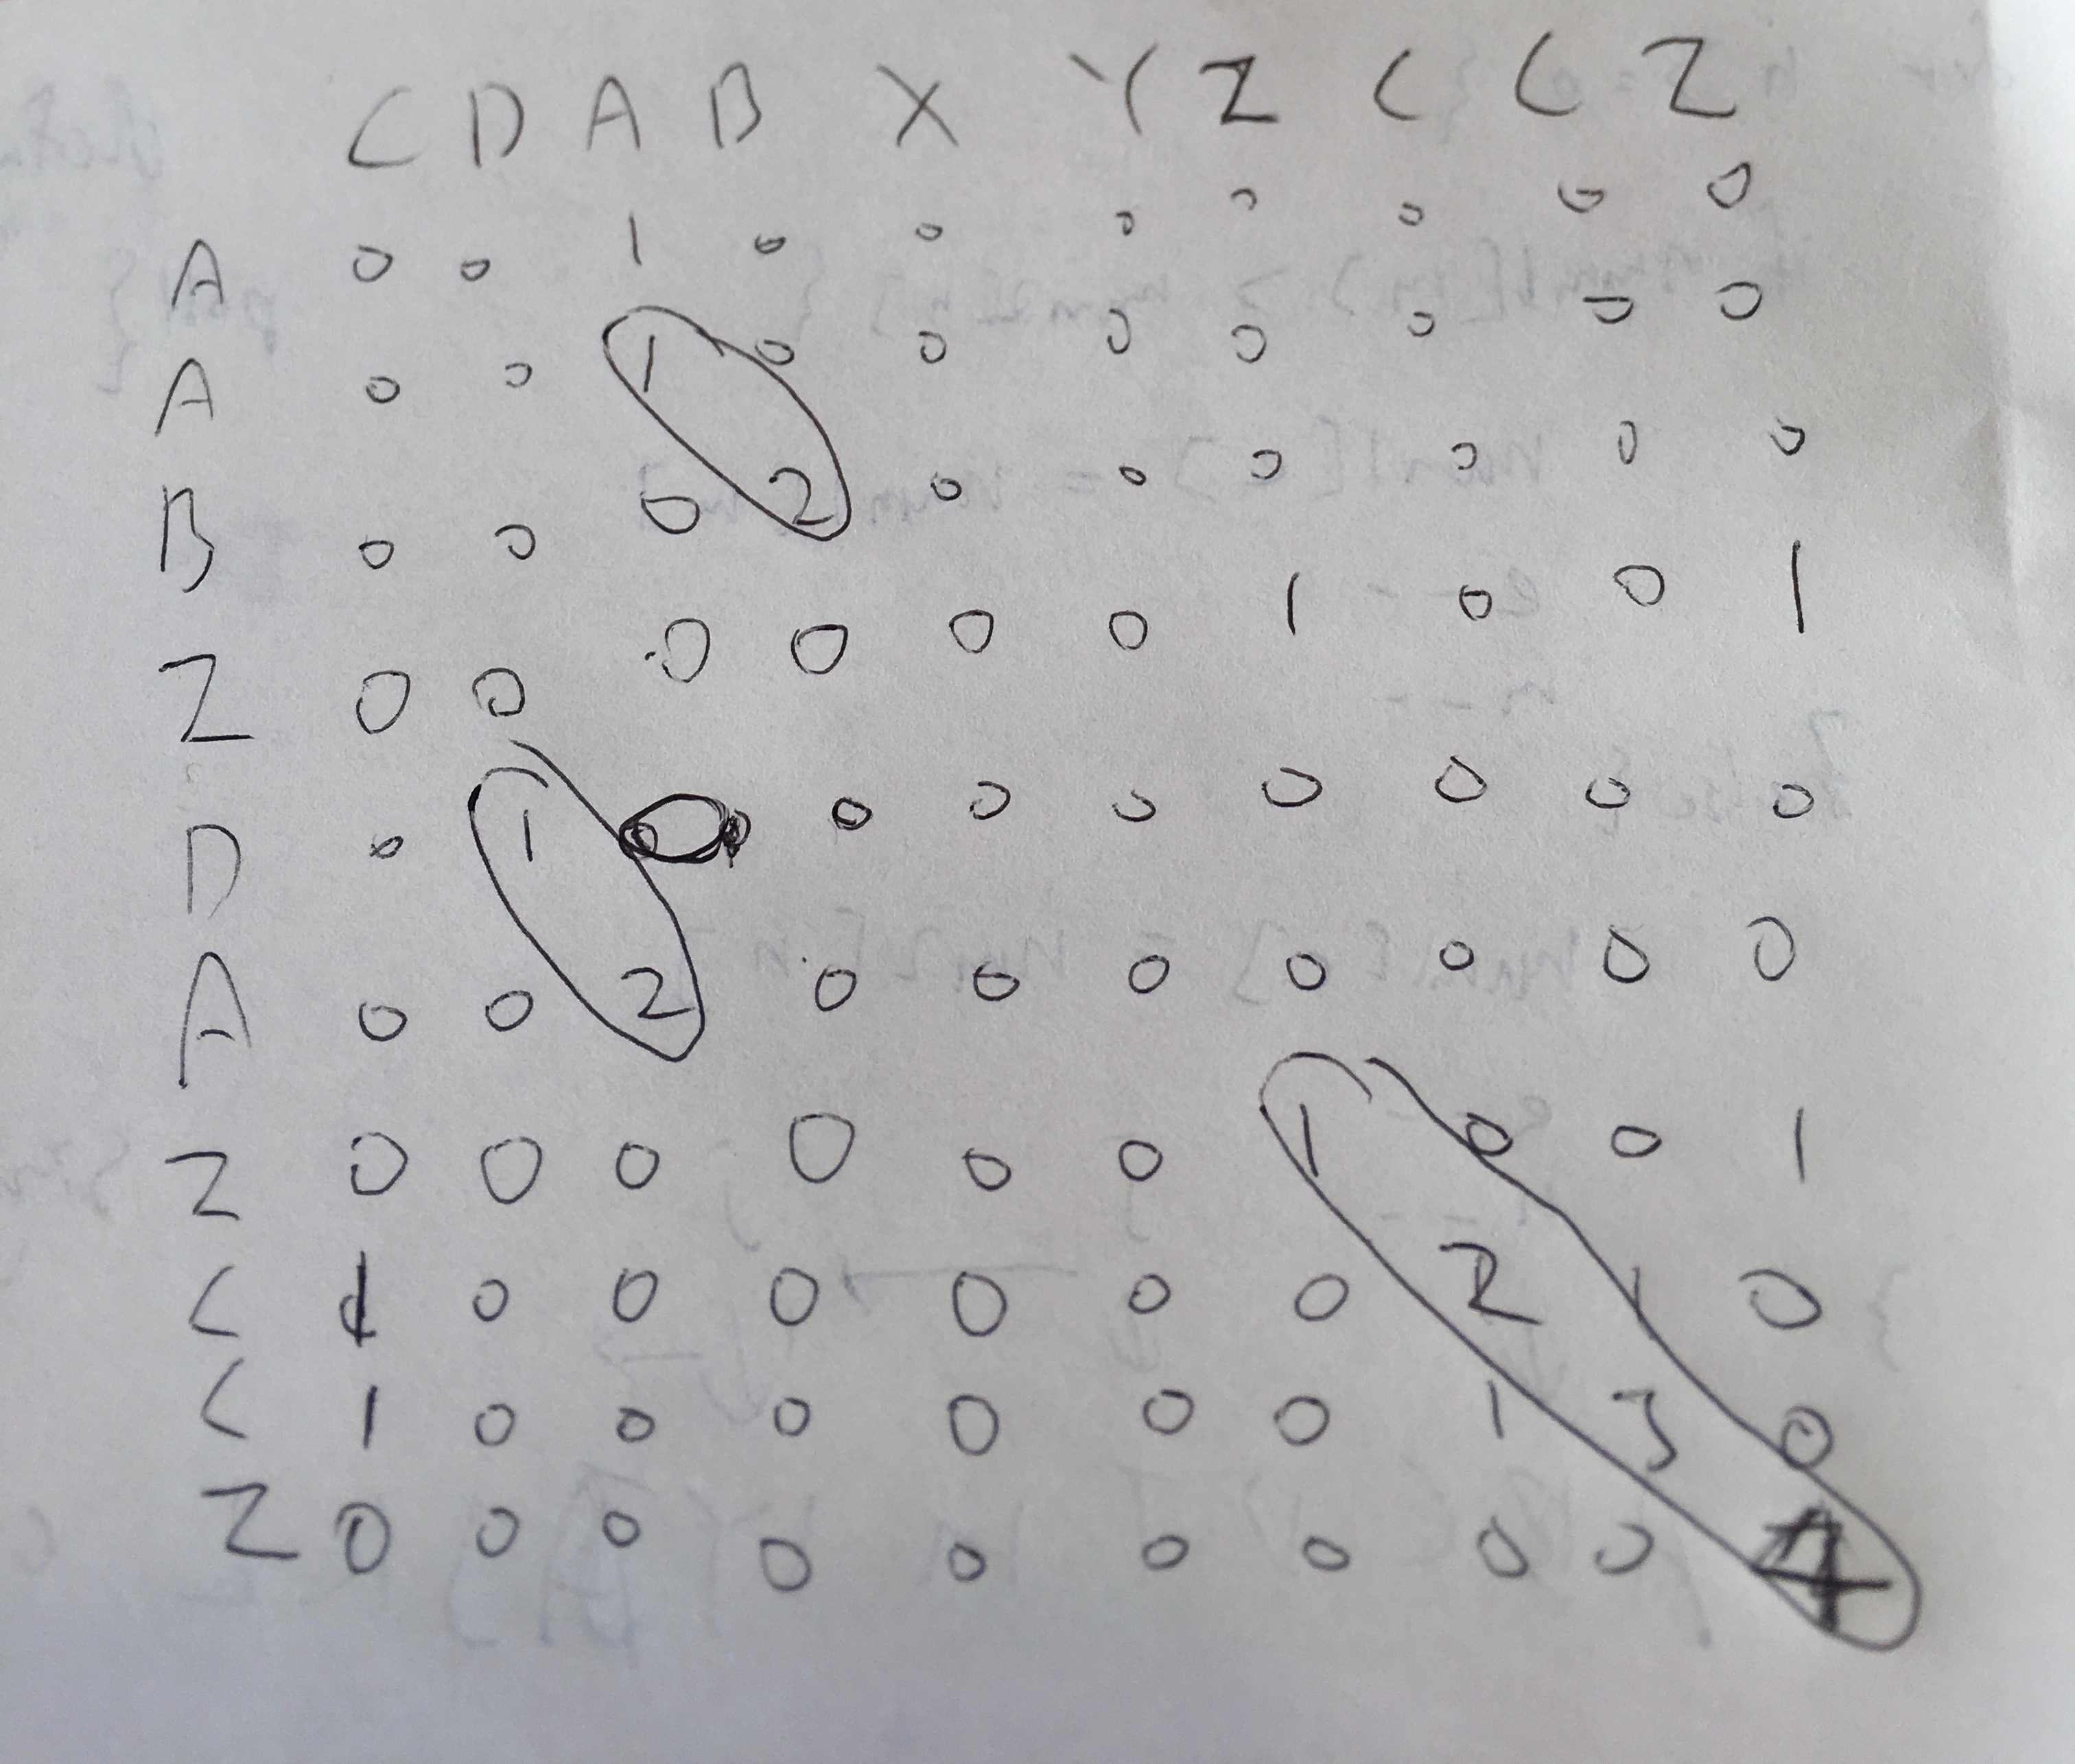 C D A B X Y Z C C Z
A 0 0 1 0 0 0 0 0 0 0
A 0 0 1 0 0 0 0 0 0 0
B 0 0 0 2 0 0 0 0 0 0
Z 0 0 0 0 0 0 1 0 0 1
D 0 1 0 0 0 0 0 0 0 0
A 0 0 2 0 0 0 0 0 0 0
Z 0 0 0 0 0 0 1 0 0 1
C 1 0 0 0 0 0 0 2 1 0
C 1 0 0 0 0 0 0 1 3 0
Z 0 0 0 0 0 0 0 0 0 4